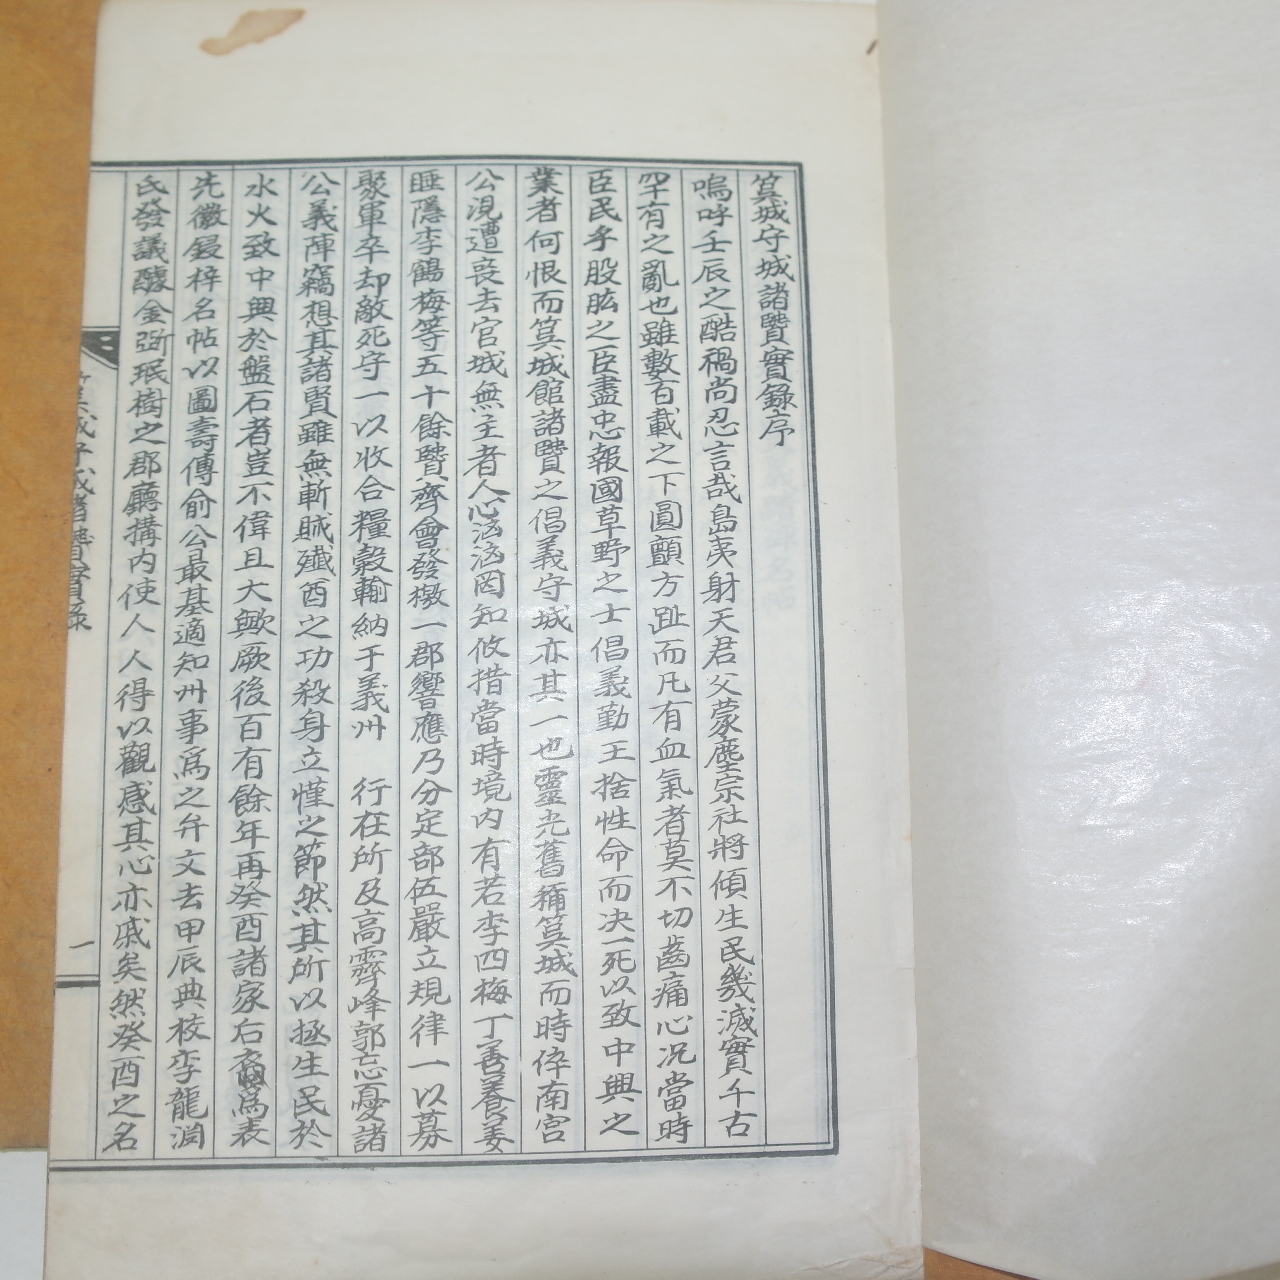 箕城守城諸賢實錄序
嗚呼壬辰之酷禍尚忍言哉島夷射天君父蒙塵宗社將傾生民幾滅實千古
罕有之亂也雖數百載之下圓顱方趾而凡有血氣者莫不切齒痛心况當時
臣民乎股肱之臣盡忠報國草野之士倡義勤王捨性命而决一死以致中興之
業者何恨而箕城館諸賢之倡義守城亦其一也靈光舊稱箕城而時倅南宮
公涀遭喪去官城無主者人心洶洶罔知攸措當時境内有若李四梅丁善養姜
睡隱李鶴梅等五十餘賢齊會發檄一郡響應乃分定部伍嚴立規律一以募
聚軍卒却敵死守一以收合糧穀輸納于義州 行在所及高霽峰郭忘憂諸
公義陣竊想其諸賢雖無斬馘殲酋之功殺身立慬之節然其所以拯生民於
水火致中興於盤石者豈不偉且大歟厥後百有餘年再癸酉諸家后裔爲表
先徽鋟梓名帖以圖壽傳俞公最基適知州事爲之弁文去甲辰典校李龍淵
氏發議醵金斲珉樹之郡廳搆内使人人得以觀感其心亦戚矣然癸酉之名
箕城守城諸賢實錄
一